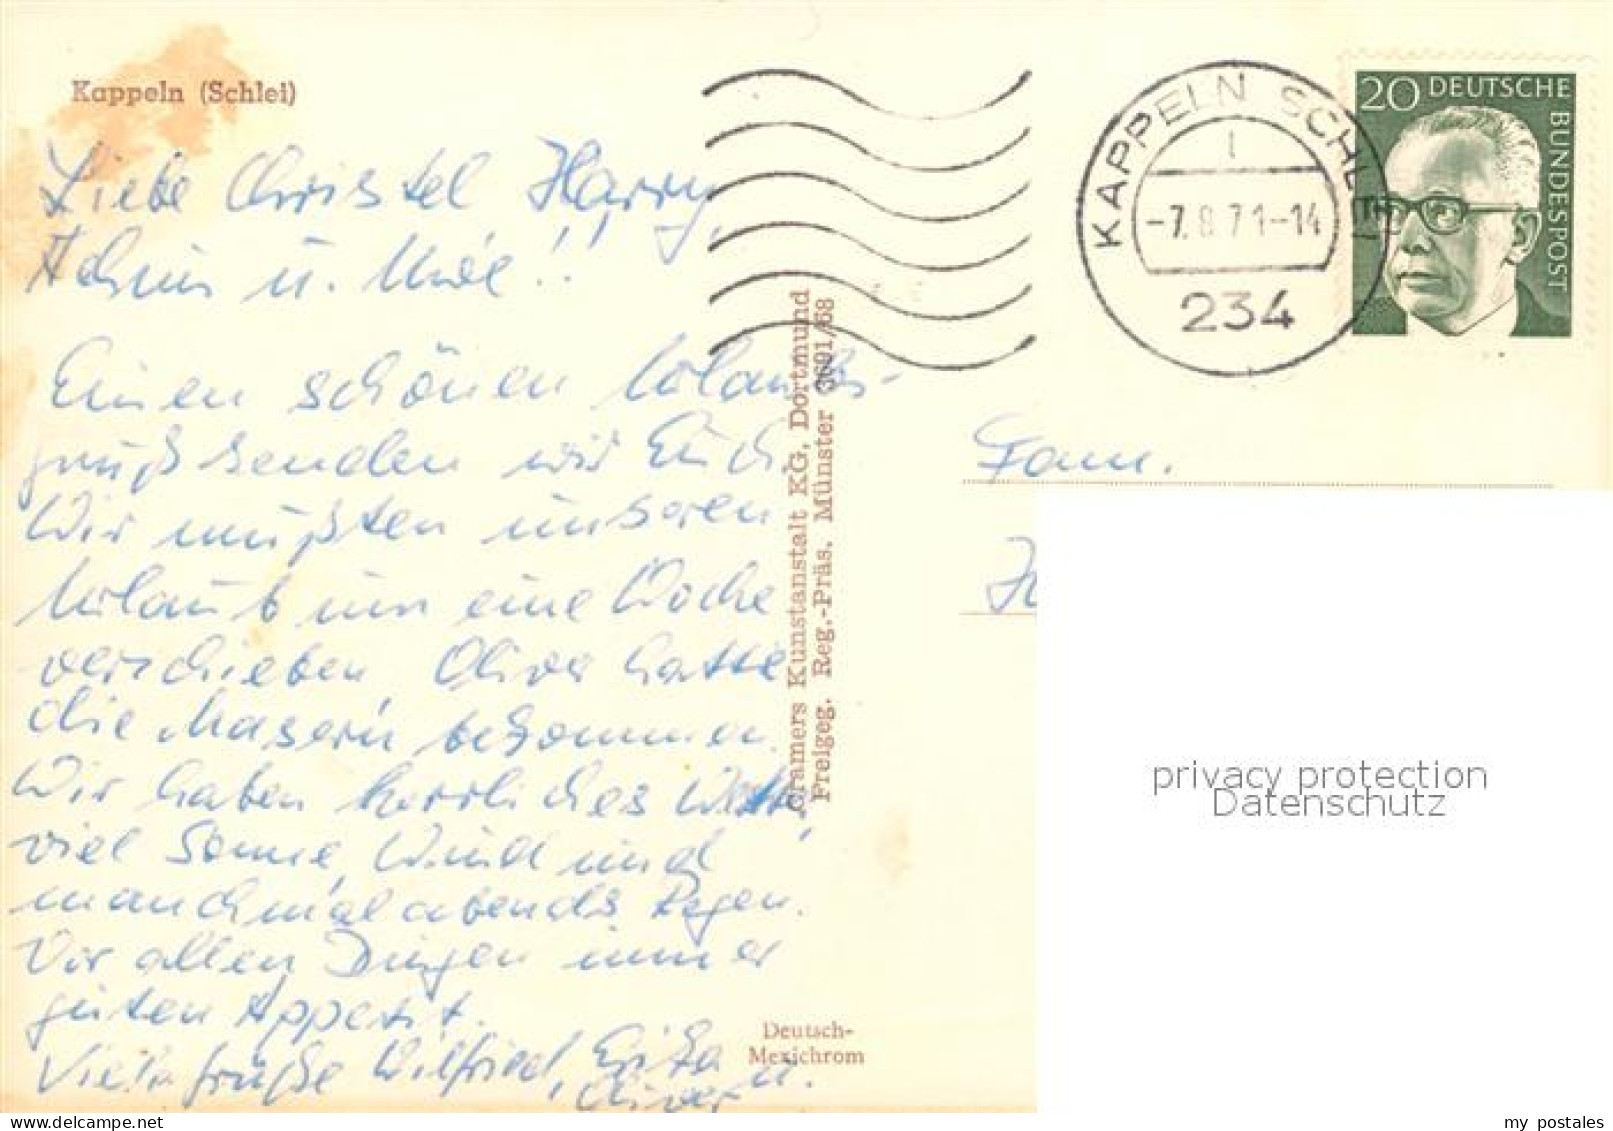 Kappeln (Schlei)
Liebe Christel, Harry,
Achim u. Uwe!
Einen schönen Urlaubs-
gruß senden wir Euch
Wir mußten unseren
Urlaub um eine Woche
verschieben, Oliver hatte
die Masern bekommen.
Wir haben herrliches Wetter,
viel Sonne, Wind und
manchmal abends Regen.
Vor allen Dingen immer
guten Appetit.
Viele Grüße Wilfried, Erika u.
Oliver
Cramers Kunstanstalt KG, Dortmund
Freigeg. Reg.-Präs. Münster 3691/68
Deutsch-
Mexichrom
KAPPELN SCHLEI
1
-7.8.71-14
234
20 DEUTSCHE
BUNDESPOST
Fam.
privacy protection
Datenschutz
my_postales